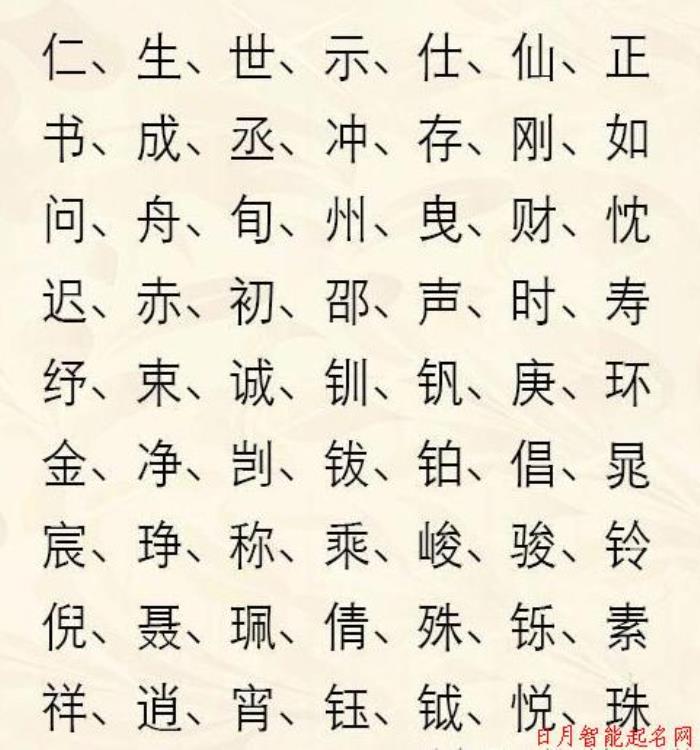 仁、生、世、示、仕、仙、正
书、成、丞、冲、存、刚、如
问、舟、旬、州、曳、财、忱
迟、赤、初、邵、声、时、寿
纾、束、诚、钏、钒、庚、环
金、净、剀、钹、铂、倡、晁
宸、琤、称、乘、峻、骏、铃
倪、聂、珮、倩、殊、铄、素
祥、逍、宵、钰、钺、悦、珠
日月智能起名网